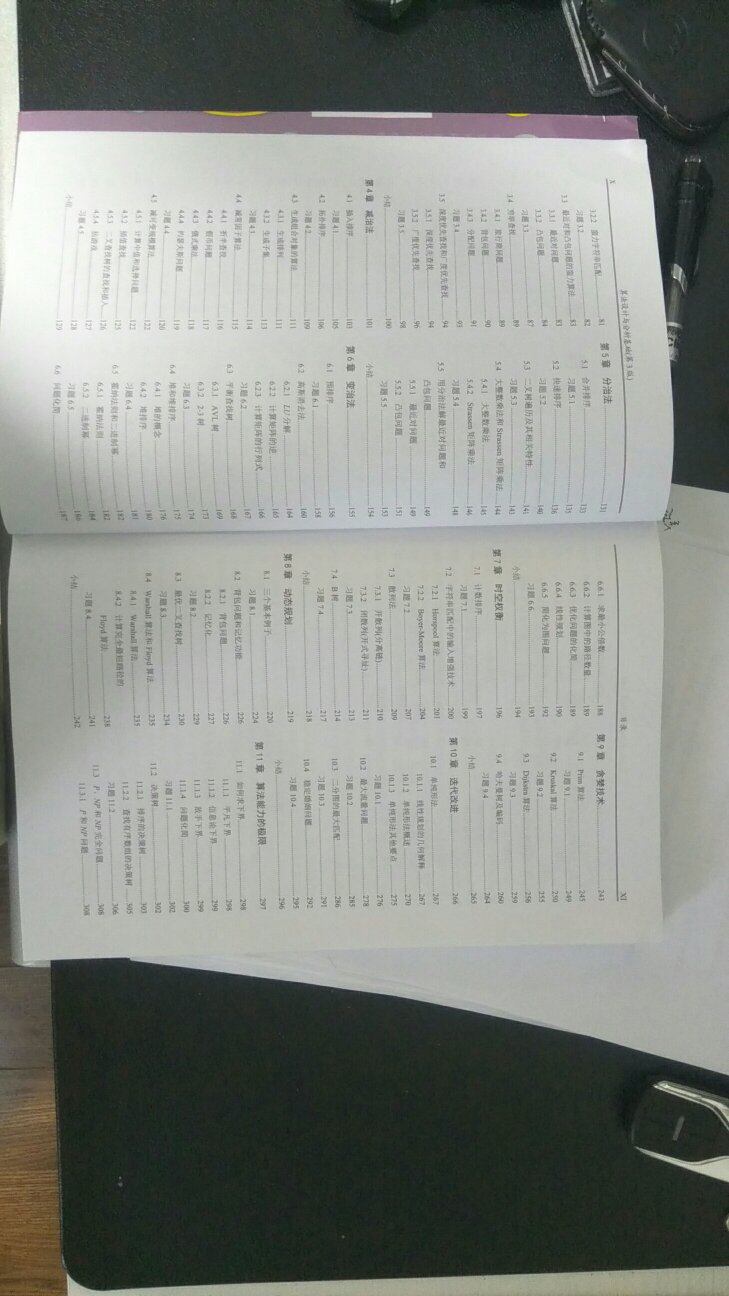 X
算法设计与分析基础(第3版)
3.2.2 蛮力字符串匹配 81
习题3.2 82
3.3 最近对和凸包问题的蛮力算法 83
3.3.1 最近对问题 83
3.3.2 凸包问题 84
习题3.3 87
3.4 穷举查找 89
3.4.1 旅行商问题 89
3.4.2 背包问题 90
3.4.3 分配问题 91
习题3.4 93
3.5 深度优先查找和广度优先查找 94
3.5.1 深度优先查找 94
3.5.2 广度优先查找 96
习题3.5 98
小结 100
第4章 减治法 101
4.1 插入排序 103
习题4.1 105
4.2 拓扑排序 106
习题4.2 109
4.3 生成组合对象的算法 111
4.3.1 生成排列 111
4.3.2 生成子集 113
习题4.3 114
4.4 减常因子算法 115
4.4.1 折半查找 116
4.4.2 假币问题 117
4.4.3 俄式乘法 118
4.4.4 约瑟夫斯问题 119
习题4.4 120
4.5 减可变规模算法 122
4.5.1 计算中值和选择问题 122
4.5.2 插值查找 125
4.5.3 二叉查找树的查找和插入 126
4.5.4 拈游戏 127
习题4.5 128
小结 129
第5章 分治法 131
5.1 合并排序 133
习题5.1 135
5.2 快速排序 136
习题5.2 140
5.3 二叉树遍历及其相关特性 141
习题5.3 143
5.4 大整数乘法和 Strassen 矩阵乘法 144
5.4.1 大整数乘法 145
5.4.2 Strassen 矩阵乘法 146
习题5.4 148
5.5 用分治法解最近对问题和
凸包问题 149
5.5.1 最近对问题 149
5.5.2 凸包问题 151
习题5.5 153
小结 154
第6章 变治法 155
6.1 预排序 156
习题6.1 158
6.2 高斯消去法 160
6.2.1 LU 分解 164
6.2.2 计算矩阵的逆 165
6.2.3 计算矩阵的行列式 166
习题6.2 167
6.3 平衡查找树 168
6.3.1 AVL 树 169
6.3.2 2-3 树 173
习题6.3 174
6.4 堆和堆排序 175
6.4.1 堆的概念 176
6.4.2 堆排序 180
习题6.4 181
6.5 霍纳法则和二进制幂 182
6.5.1 霍纳法则 182
6.5.2 二进制幂 184
习题6.5 186
6.6 问题化简 187
目录
XI
6.6.1 求最小公倍数 188
6.6.2 计算图中的路径数量 189
6.6.3 优化问题的化简 189
6.6.4 线性规划 190
6.6.5 简化为图问题 192
习题6.6 193
小结 194
第7章 时空权衡 196
7.1 计数排序 197
习题7.1 199
7.2 字符串匹配中的输入增强技术 200
7.2.1 Horspool 算法 201
7.2.2 Boyer-Moore 算法 204
习题7.2 207
7.3 散列法 209
7.3.1 开散列(分离链) 210
7.3.2 闭散列(开式寻址) 211
习题7.3 213
7.4 B 树 214
习题7.4 217
小结 218
第8章 动态规划 219
8.1 三个基本例子 220
习题8.1 224
8.2 背包问题和记忆功能 226
8.2.1 背包问题 226
8.2.2 记忆化 227
习题8.2 229
8.3 最优二叉查找树 230
习题8.3 234
8.4 Warshall 算法和 Floyd 算法 235
8.4.1 Warshall 算法 235
8.4.2 计算完全最短路径的
Floyd 算法 238
习题8.4 241
小结 242
第9章 贪婪技术 243
9.1 Prim 算法 245
习题9.1 249
9.2 Kruskal 算法 250
习题9.2 255
9.3 Dijkstra 算法 256
习题9.3 259
9.4 哈夫曼树及编码 260
习题9.4 264
小结 265
第10章 迭代改进 266
10.1 单纯形法 267
10.1.1 线性规划的几何解释 267
10.1.2 单纯形法概述 270
10.1.3 单纯形法其他要点 275
习题10.1 276
10.2 最大流量问题 278
习题10.2 285
10.3 二分图的最大匹配 286
习题10.3 291
10.4 稳定婚姻问题 292
习题10.4 295
小结 296
第11章 算法能力的极限 297
11.1 如何求下界 298
11.1.1 平凡下界 298
11.1.2 信息论下界 299
11.1.3 敌手下界 299
11.1.4 问题化简 300
习题11.1 302
11.2 决策树 302
11.2.1 排序的决策树 303
11.2.2 查找有序数组的决策树 305
习题11.2 306
11.3 P、NP 和 NP 完全问题 308
11.3.1 P 和 NP 问题 308